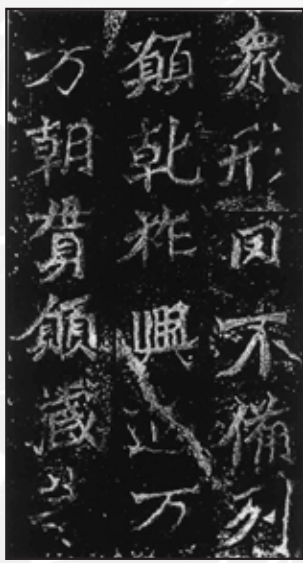 衆形罔不備列
願乹祚興延万
方朝貫願藏等